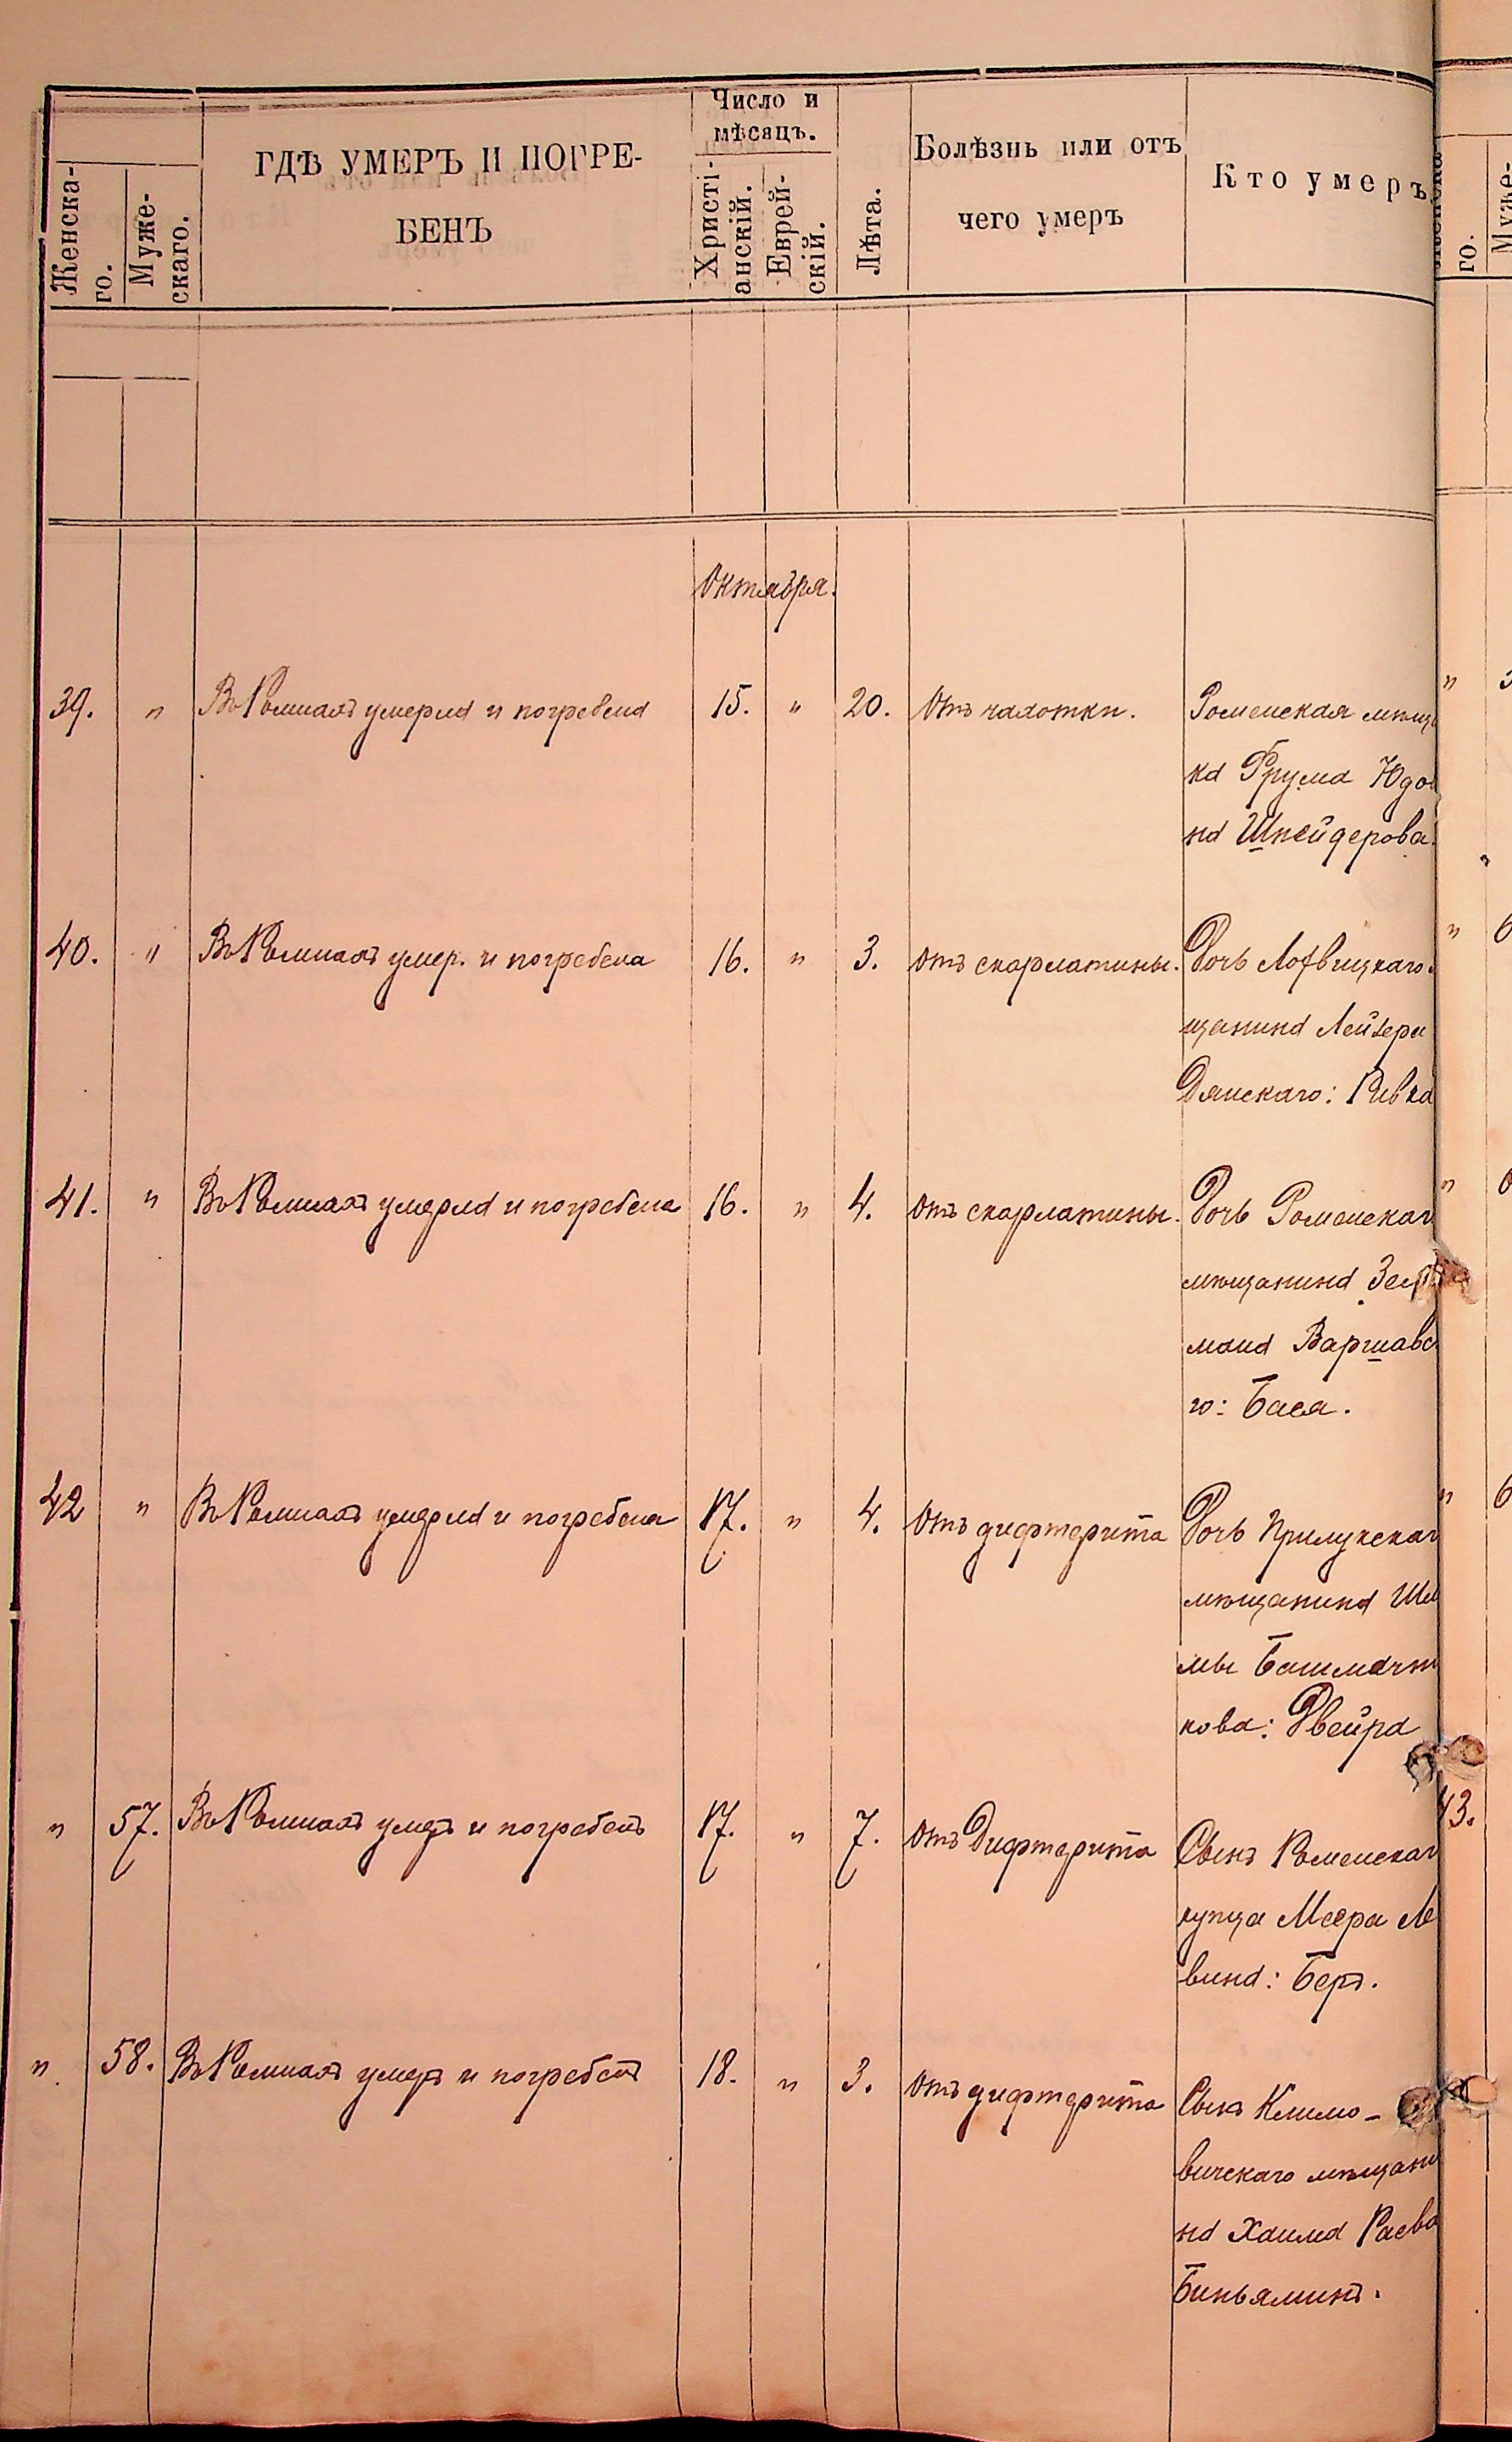 Женска-
го.
Муже-
скаго.
ГДѢ УМЕРЪ И ПОГРЕ-
БЕНЪ
Число и
мѣсяцъ.
Христі-
анскій.
Еврей-
скій.
Лѣта.
Болѣзнь или отъ
чего умеръ
Кто умеръ
го.
Муже-
Октября.
39. " Въ Ромнахъ умерла и погребена 15. " 20. Отъ чахотки. Роменская мѣщ
ка Фрума Юдо
на Шнейдерова.
40. " Въ Ромнахъ умер. и погребена 16. " 3. отъ скарлатины. Дочь Лохвицкаго
щанина Лейзера
Дянскаго: Ривка
41. " Въ Ромнахъ умерла и погребена 16. " 4. отъ скарлатины. Дочь Роменскаг
мѣщанина
мана Варшавс
го: Бася.
42 " Въ Ромнахъ умерла и погребена 17. " 4. Отъ дифтерита Дочь Прилукскаг
мѣщанина
мы Башмачн
кова: Двейра
" 57. Въ Ромнахъ умеръ и погребенъ 17. " 7. отъ Дифтерита Сынъ Роменскаг
купца Меера Ле
вина: Беръ.
" 58. Въ Ромнахъ умеръ и погребенъ 18. " 3. Отъ дифтерита Сынъ Климо-
вичскаго мѣщани
на Хаима Раево
Биньяминъ.
43.